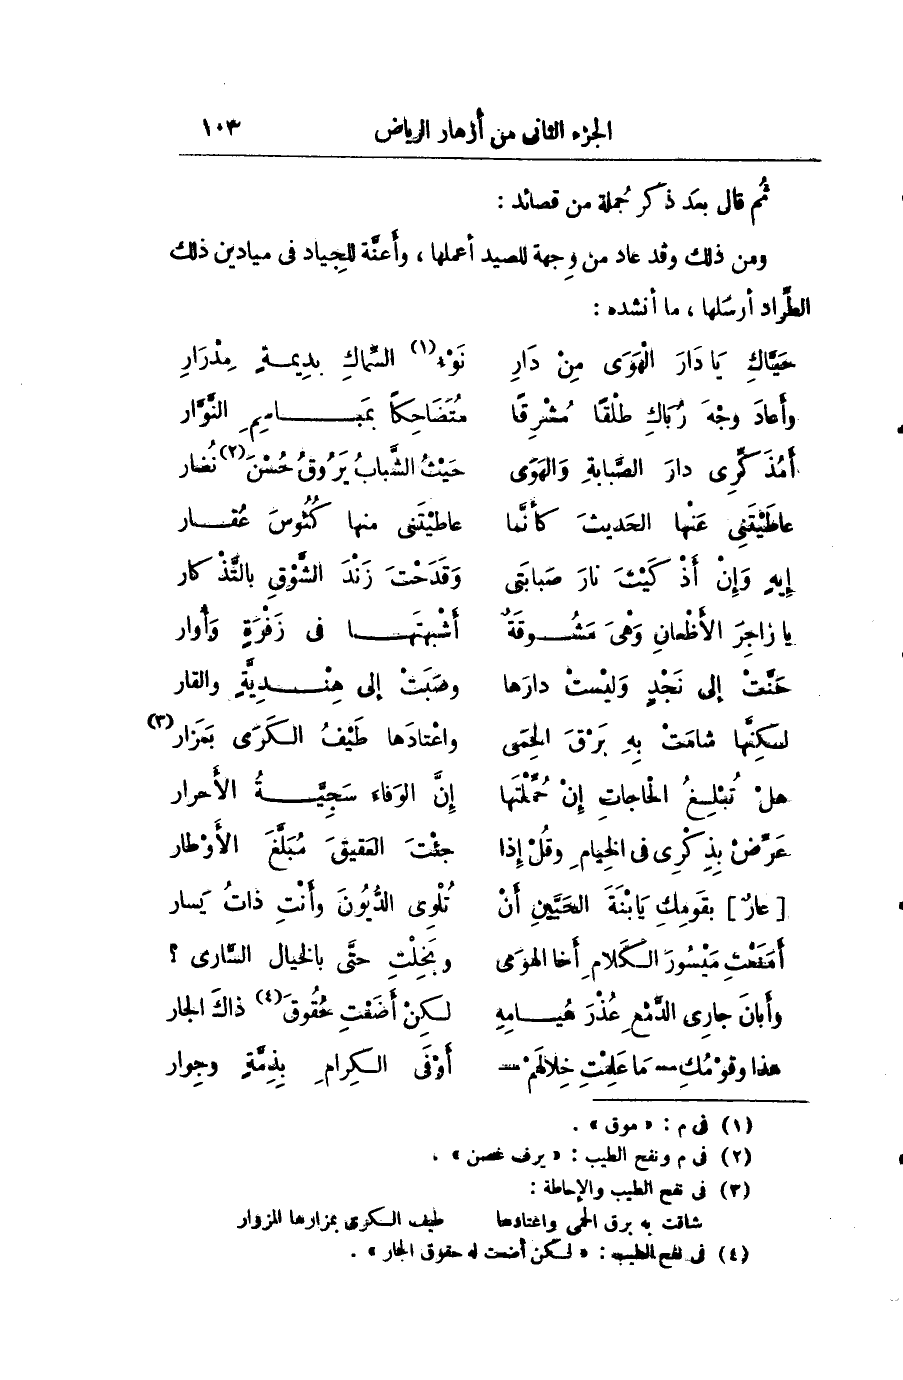 الجزء الثانى من أزهار الرياض ١٠٣
ثُم قال بعد ذكر جُملة من قصائد :
ومن ذلك وقد عاد من وِجهة للصيد أعملها ، وأَعنَّة للجِياد فى ميادين ذلك
الطَّراد أرسَلها ، ما أنشده :
حَيَّاكِ يَا دَارَ الْهَوَى مِنْ دَارِ نَوْءُ(١) السِّماكِ بدِيمةٍ مِدْرَارِ
وأَعادَ وجْهَ رُبَاكِ طلْقًا مُشْرِقًا مُتَضَاحِكاً بمَبَاسِمِ النُّوَّار
أَمُذَكِّرِى دارَ الصَّبابةِ وَالهَوَى حَيْثُ الشَّبابُ يَرُوقُ حُسْنَ(٢) نُضار
عاطَيْتَنِى عَنْها الحَديثَ كأَنَّما عاطَيْتَنى منها كُئُوسَ عُقار
إِيهِ وَإِنْ أَذْكَيْتَ نارَ صَبابَتى وَقَدَحْتَ زَنْدَ الشَّوْقِ بالتَّذْكار
يا زاجِرَ الأَظْعانِ وَهْىَ مَشُوقَةٌ أَشْبَهتَها فى زَفْرَةٍ وَأُوار
حَنَّتْ إلى نَجْدٍ وَليْستْ دارَها وصَبَتْ إلى هِنْدِيَّةٍ والقار
لكِنَّها شامَتْ بِهِ بَرْقَ الحِمَى واعْتادَها طَيْفُ الكَرَى بمَزَار(٣)
هلْ تُبْلِغُ الحَاجاتِ إِنْ حُمِّلْتَها إِنَّ الوَفاء سَجِيَّةُ الأَحرار
عَرِّضْ بِذِكْرِى فى الخِيامِ وقُلْ إِذا جئْتَ العَقيقَ مُبَلَّغَ الأَوْطار
[ عارٌ ] بقَومِكِ يَابْنَةَ الحَيَّينِ أَنْ تُلْوِى الدُّيُونَ وأَنْتِ ذاتُ يَسار
أَمَنَعْتِ مَيْسُورَ الكَلامِ أَخا الهوَى وبَخِلْتِ حتَّى بالخيال السَّارى ؟
وأَبانَ جارِى الدَّمْعِ عُذْرَ هُيَامِهِ لكنْ أَضَعْتِ حُقُوقَ(٤) ذاكَ الجار
هذا وقَوْمُكِ — مَا عَلِمْتِ خِلالَهُمْ — أَوْفَى الكِرامِ بِذِمَّةٍ وجِوار
(١) فى م : « موق » .
(٢) فى م ونفح الطيب : « يرف غصن » .
(٣) فى نفح الطيب والإحاطة :
شاقت به برق الحمى واغتادها طيف الكرى بمزارها المزوار
(٤) فى نفح الطيب : « لكن أضعت له حقوق الجار » .